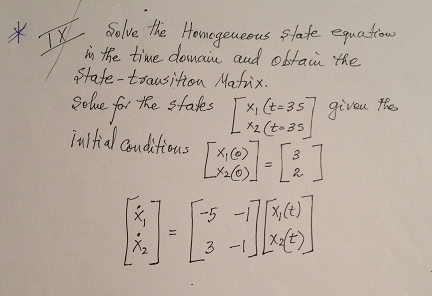 * IX Solve the Homogeneous state equation
in the time domain and obtain the
State-transition Matrix.
Solve for the states [x₁(t=3s] given the
[x₂(t=3s]
initial conditions [x₁(0)] = [3]
[x₂(0)] [2]
[ẋ₁] = [-5 -1] [x₁(t)]
[ẋ₂] [3 -1] [x₂(t)]